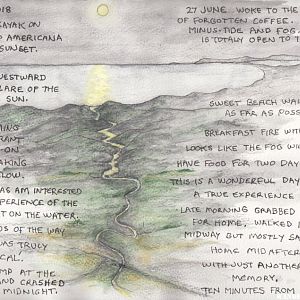 018
KAYAK ON
O AMERICANA
SUNSET.
WESTWARD
LARE OF THE
SUN.
MING
RANT
ON
AKING
LOW.
AS AM INTERESTED
XPERIENCE OF THE
T ON THE WATER.
DS OF THE WAY
AS TRULY
CAL.
MP AT THE
AND CRASHED
MIDNIGHT.
27 JUNE WOKE TO THE
OF FORGOTTEN COFFEE.
MINUS-TIDE AND FOG.
IS TOTALY OPEN TO T
SWEET BEACH WAL
AS FAR AS POSS
BREAKFAST FIRE WITH
LOOKS LIKE THE FOG WIL
HAVE FOOD FOR TWO DAY
THIS IS A WONDERFUL DAY
A TRUE EXPERIENCE
LATE MORNING GRABBED
FOR HOME, WALKED
MIDWAY BUT MOSTLY SA
HOME MIDAFTER
WITH JUST ANOTHE
MEMORY.
TEN MINUTES FROM